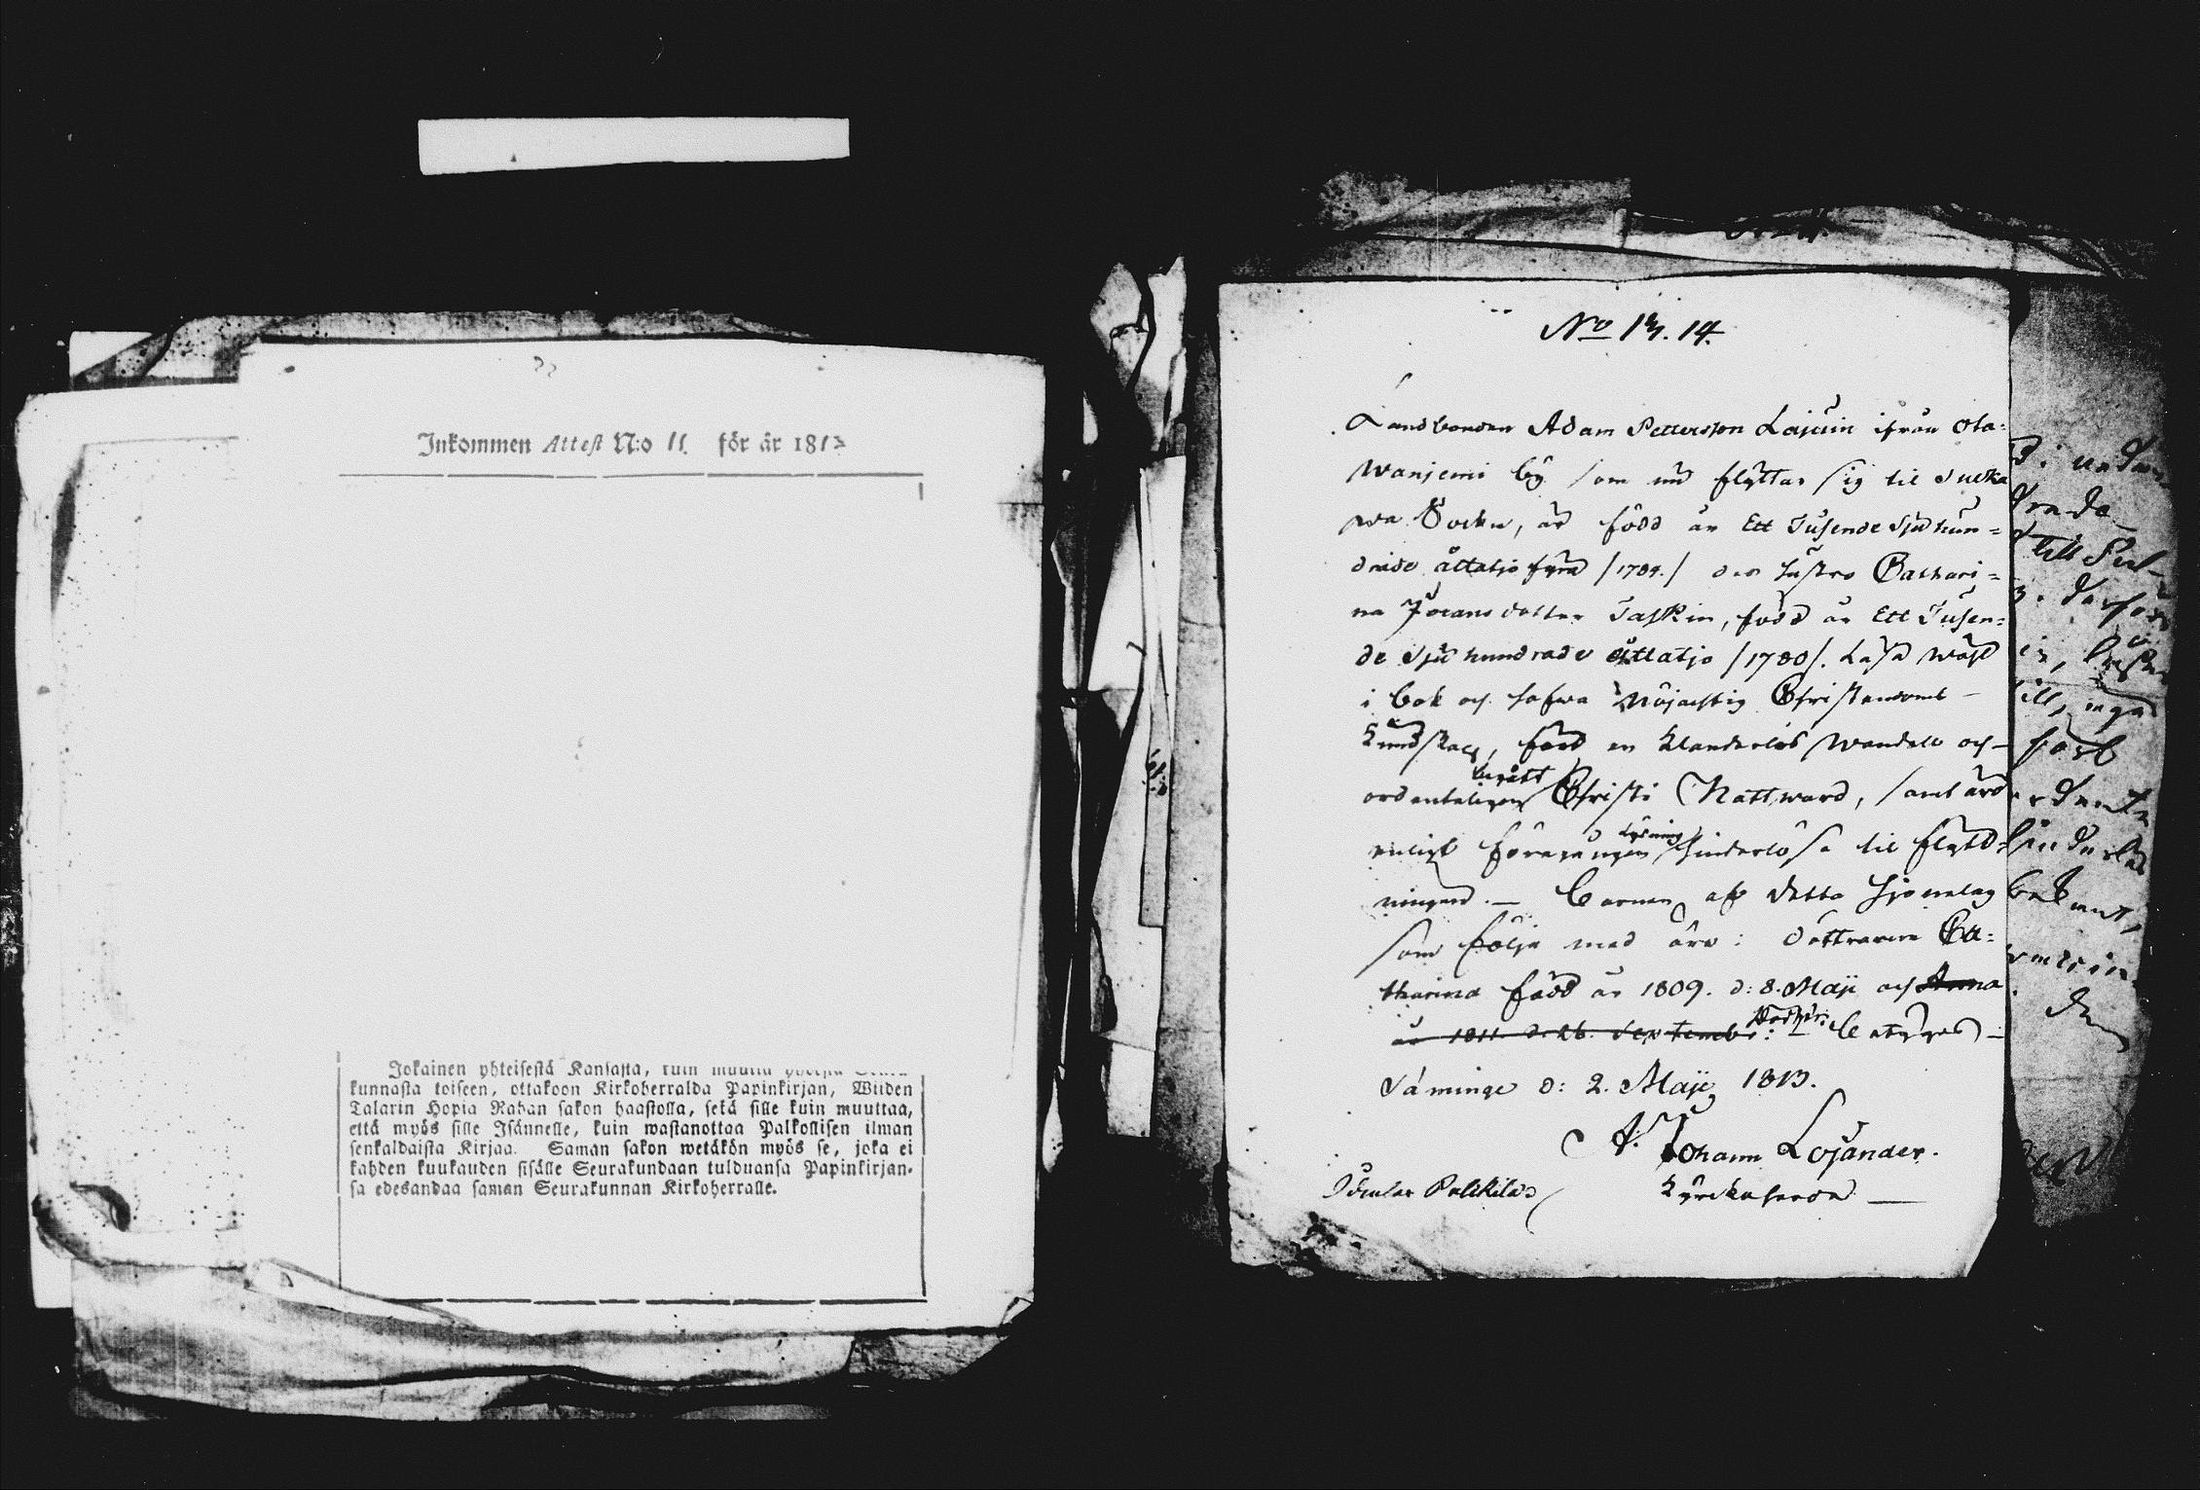 Inkommen Attest N:o 11. för år 1813
Jokainen yhteisestä Kansasta, kuin muutta yhdestä Seura-
kunnasta toiseen, ottakoon Kirkoherralda Papinkirjan, Wiiden
Talarin Hopia Rahan sakon haastolla, sekä sille kuin muuttaa,
että myös sille Isännelle, kuin wastanottaa Palkollisen ilman
senkaldaista Kirjaa. Saman sakon wetäkön myös se, joka ei
kahden kuukauden sisälle Seurakundaan tulduansa Papinkirjan-
sa edesandaa saman Seurakunnan Kirkoherralle.
No 14.
Landbonden Adam Pettersson Lajuin ifrån Ola-
wanjemi by som nu flyttar sig til Sulka
wa Sockn, är född år Ett Tusende Sjuhun=
drade åttatjo fyra /1784./ des hustro Cathari=
na Jöransdotter Taskin, född år Ett Tusen=
de Sju hundrade åttatjo /1780/. Läsa wäl
i bok och hafwa nöjachtig Christendoms
Kundskap, fört en Klanderlös wandel och
ordenteligen begått Christi Nattward, samt äro
enligt föregången Lysning hinderlösa til flytt=
ningen. — Barnen af detta hjonelag
som följa med äro: döttrarna Ca=
tharina född år 1809. d: 8. Maji och Anna
år 1811. d. 26. Septemb: Betyges —
Säminge d: 2. Maji 1813.
A. Johann Lojander.
Kyrckoherde